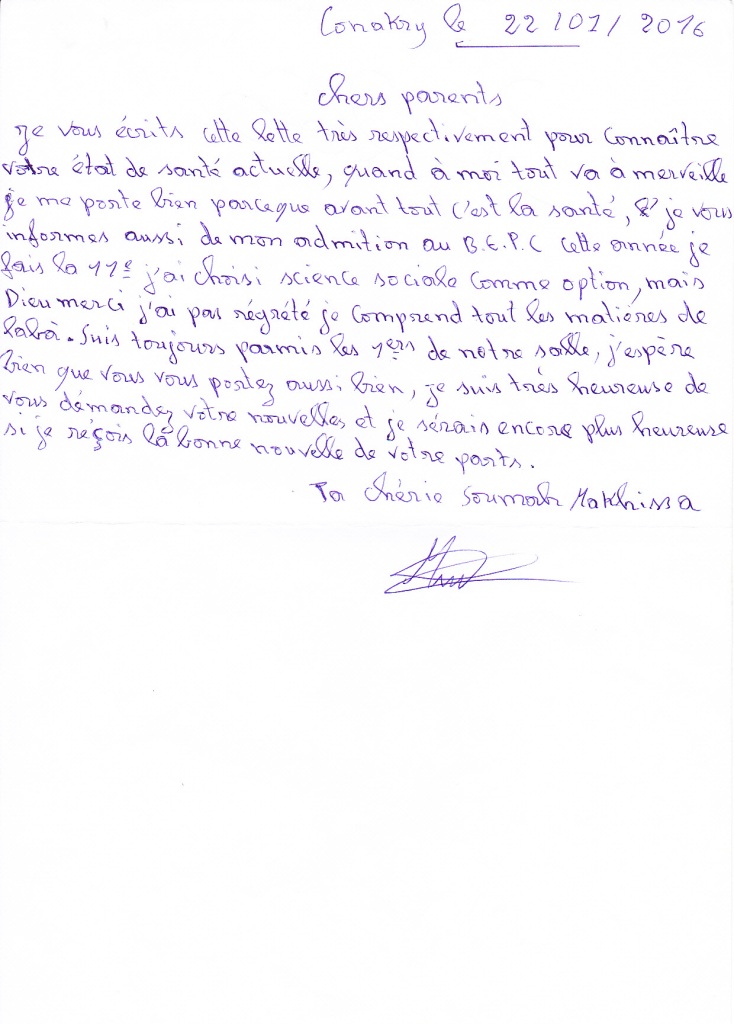 Conakry le 22/01/2016
chers parents
Je vous écrits cette lette très respectivement pour connaître
votre état de santé actuelle, quand à moi tout va à merveille
je me porte bien parceque avant tout c'est la santé, & je vous
informes aussi de mon admition au B.E.P.C cette année je
fais la 11e j'ai choisi science sociale comme option, mais
Dieu merci j'ai pas régrété je comprend tout les matières de
labà. Suis toujours parmis les 1ers de notre salle, j'espère
bien que vous vous portez aussi bien, je suis très heureuse de
vous démandez votre nouvelles et je sérais encore plus heureuse
si je réçois là bonne nouvelle de votre parts.
Ta chérie Soumah Makhissa